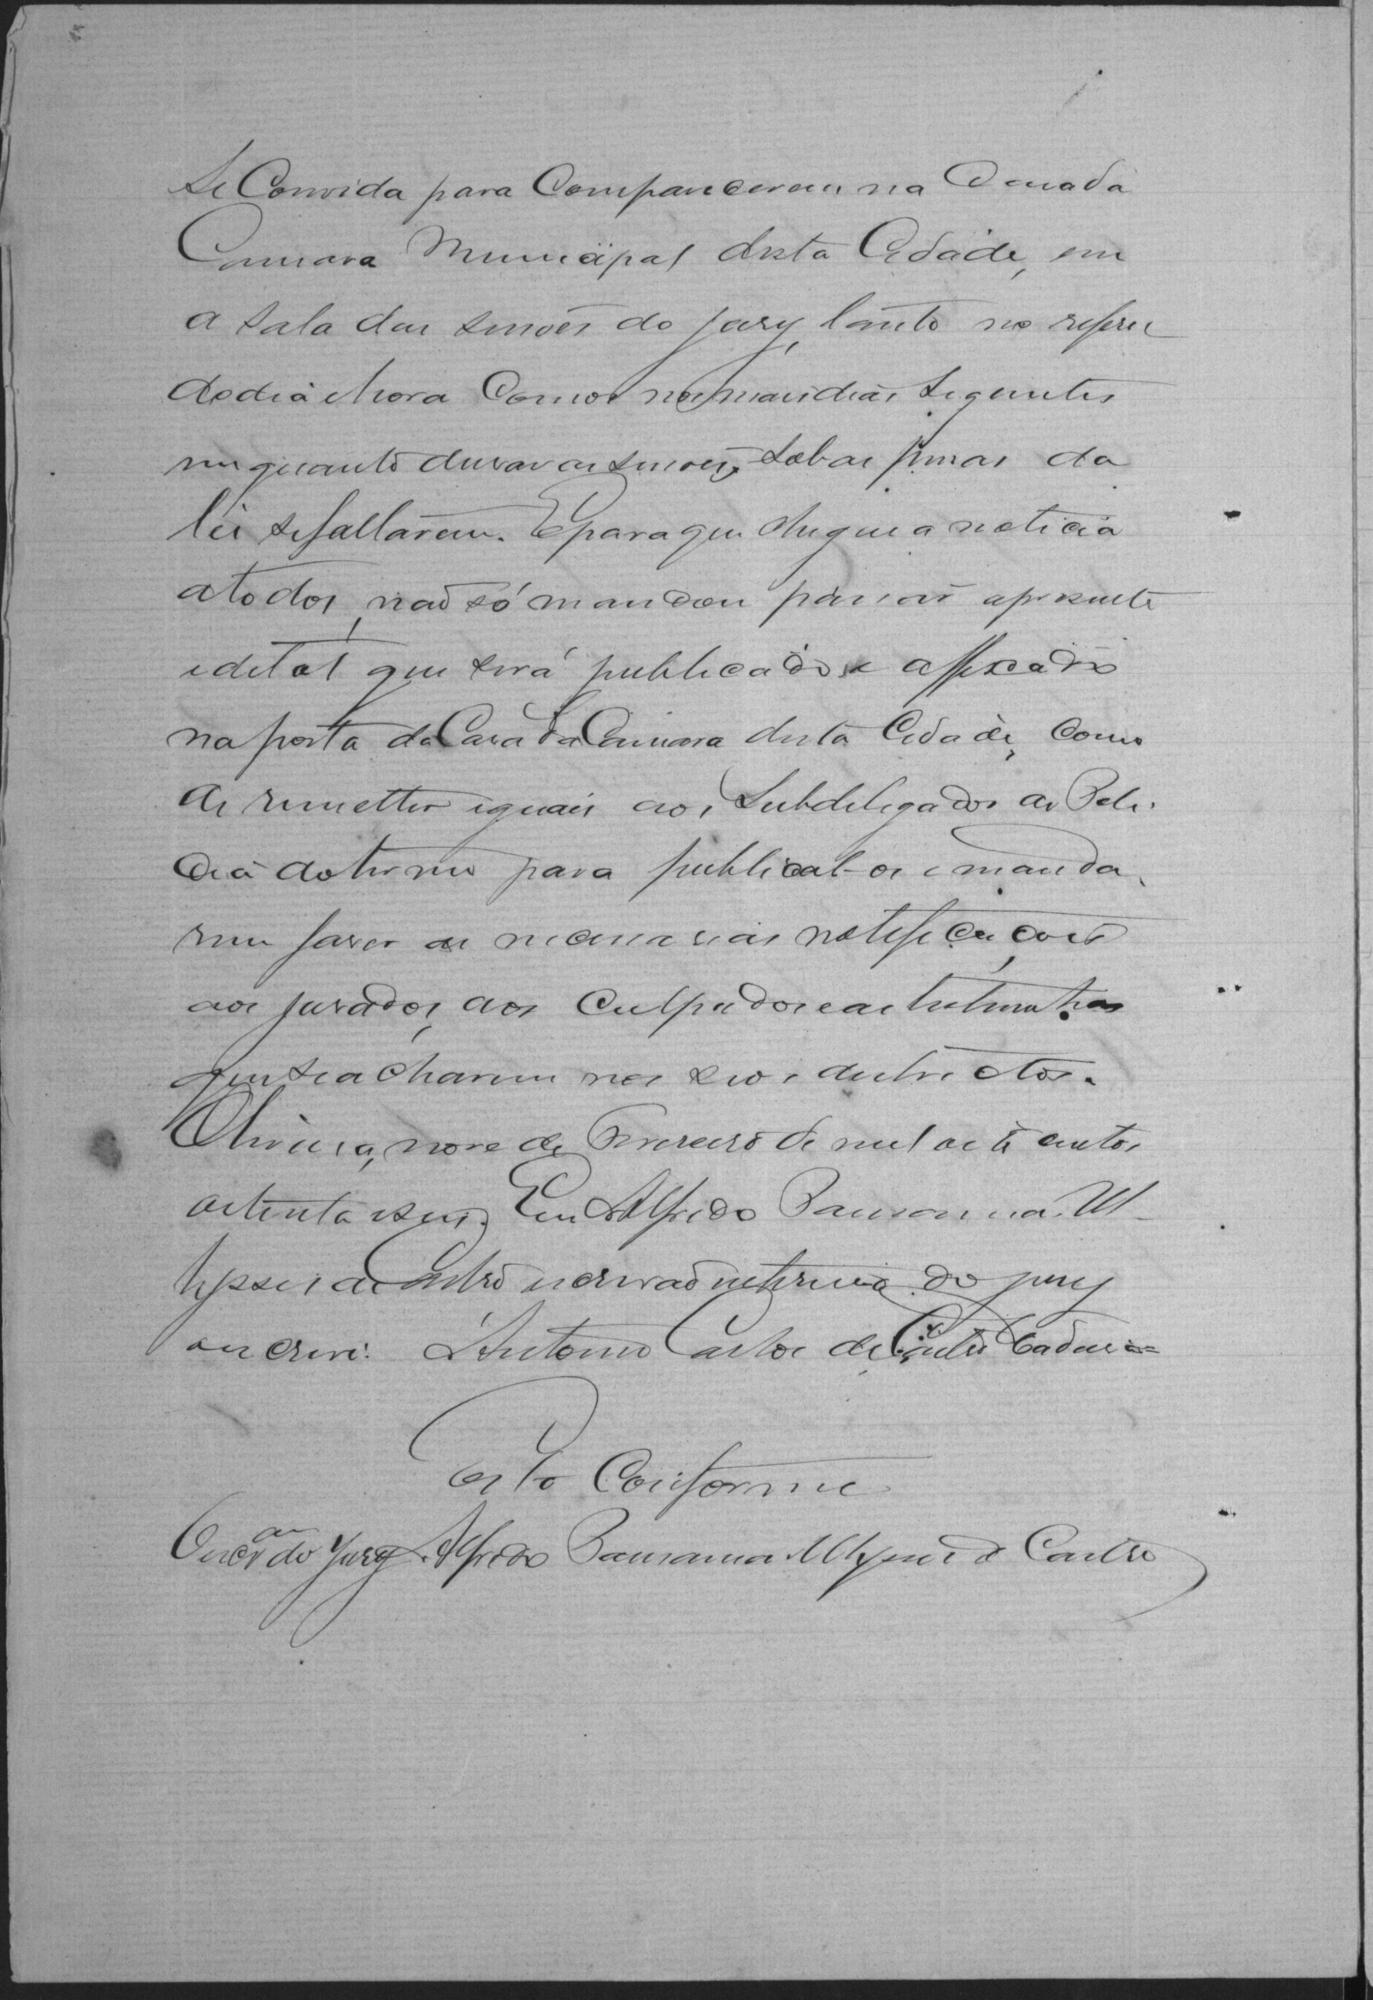 se Convida para Comparecerem na Casa da
Camara Municipal desta Cidade, em
a sala das sessões do jury, tanto no referi
do dia e hora Como nos mais dias seguintes
em quanto durar as sessões, sob as penas da
lei se faltarem. E para que chegue a noticia
a todos, não só mandou passar o presente
edital que será publicado e affixado
na porta da Casa da Camara desta Cidade, como
de remetter iguais aos Subdelegados de Poli-
cia do termo para publical-os e manda-
rem fazer as necessarias notificações
aos jurados, aos Culpados e as testemunhas
que se acharem nos seos destrictos.
Oliveira, nove de Fevereiro de mil oito centos
oitenta e seis. Eu Alfredo Pausania Ul-
lysses de Castro escrivão interino do jury
o escrevi. Antonio Carlos de Castro
Está Conforme
O escr.am do Jury Alfredo Pausania Ulysses de Castro